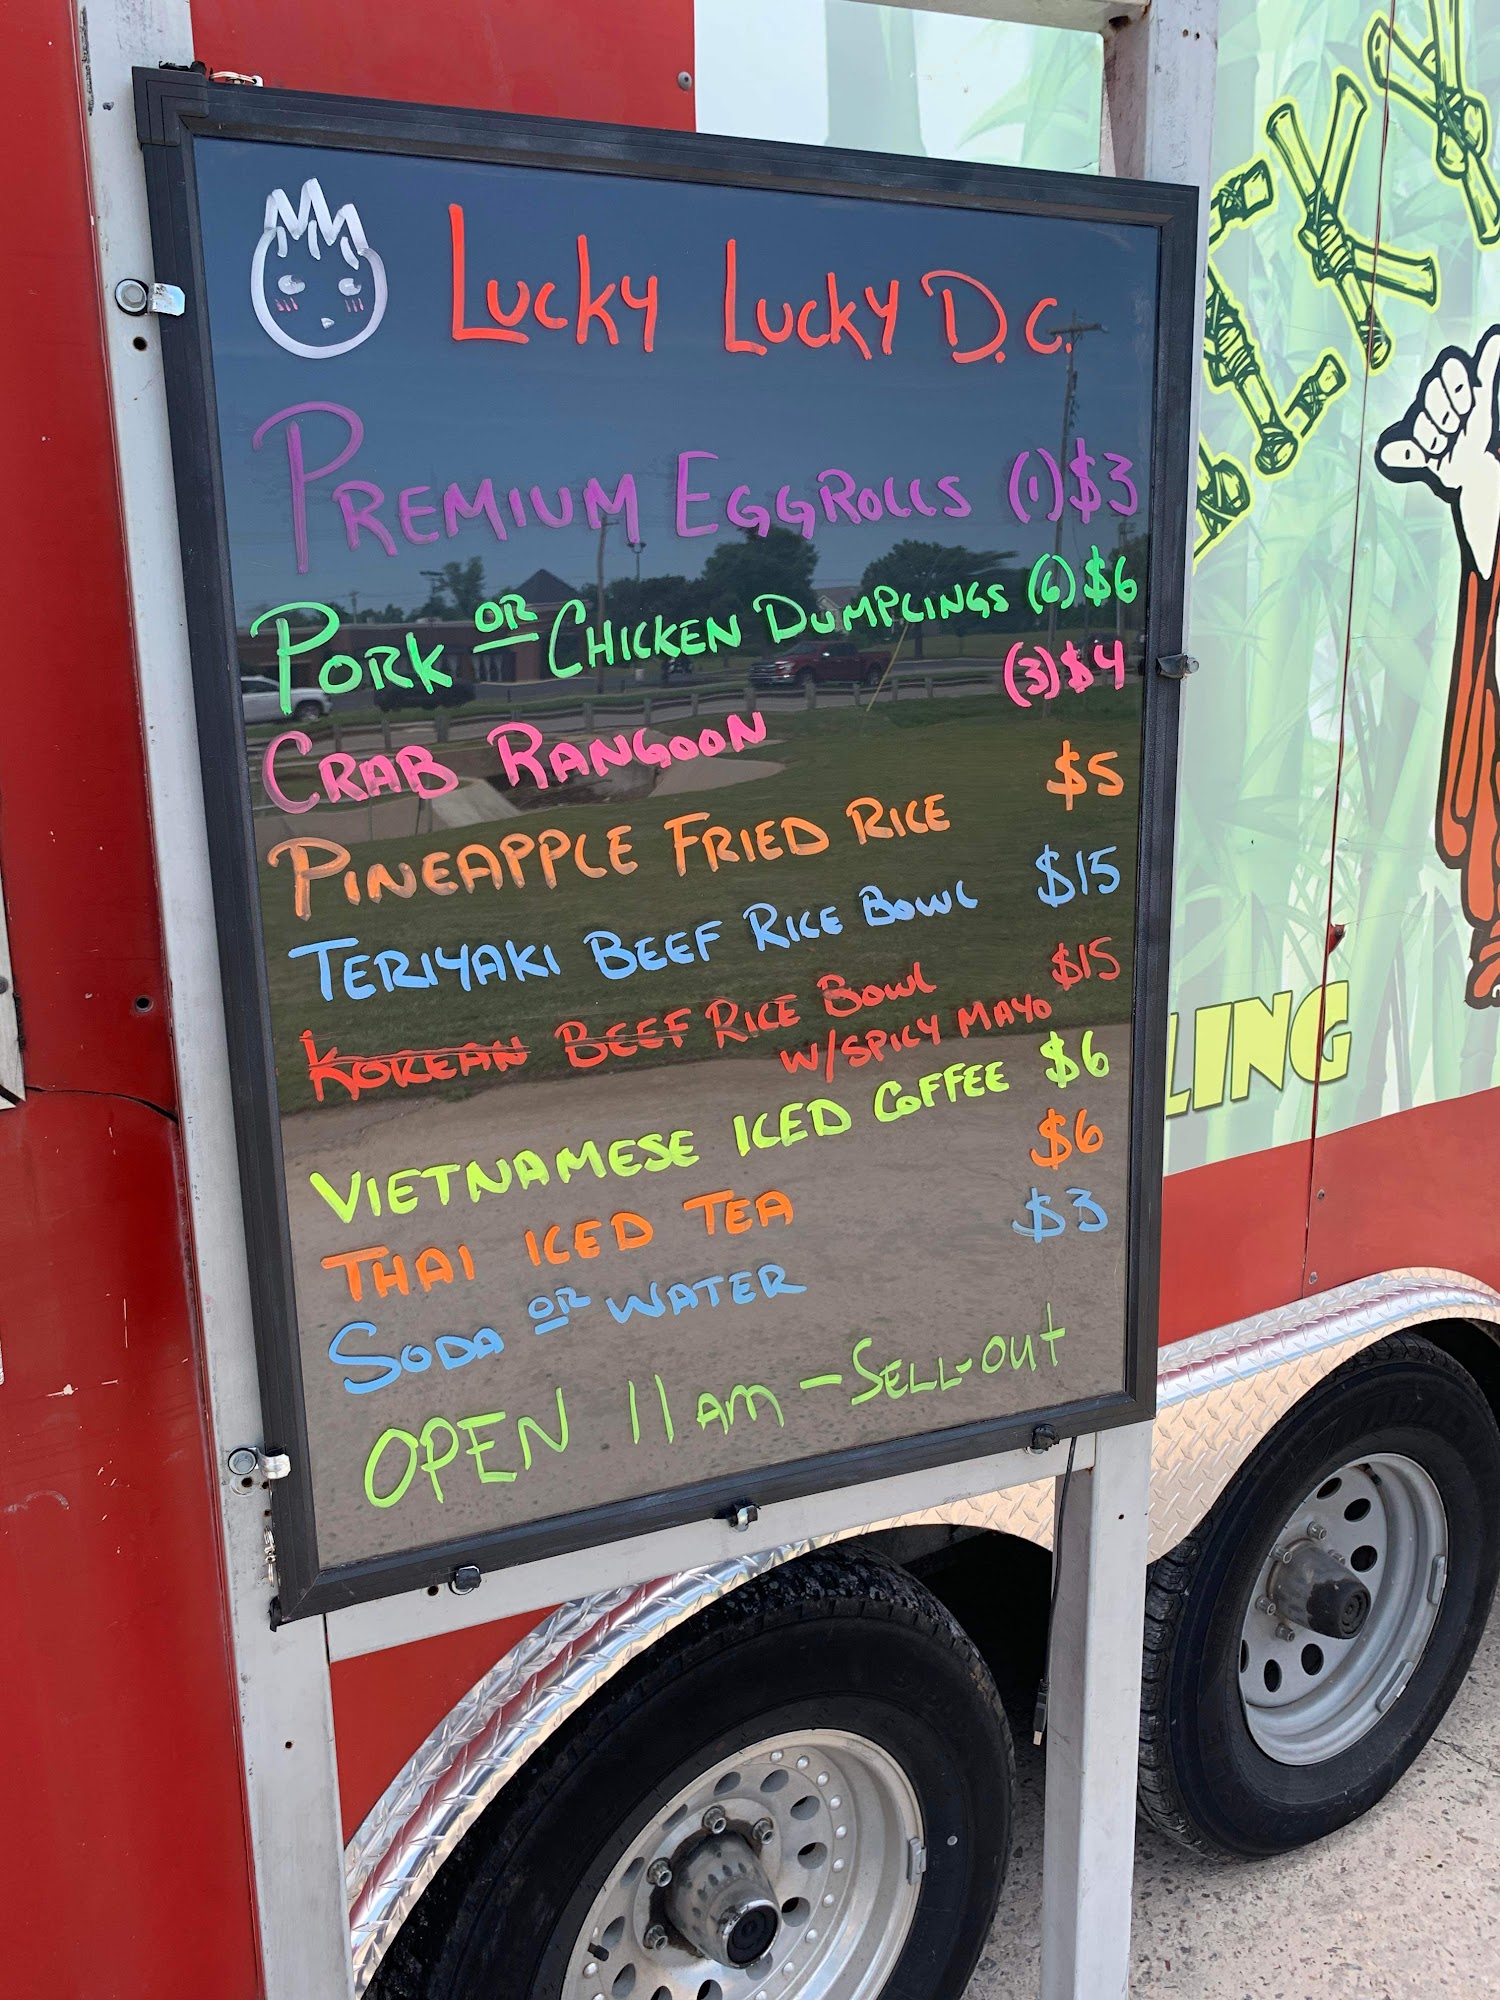 Lucky Lucky D.C.
PREMIUM EGGROLLS (1) $3
PORK OR CHICKEN DUMPLINGS (6) $6
CRAB RANGOON (3) $4
PINEAPPLE FRIED RICE $5
TERIYAKI BEEF RICE BOWL $15
KOREAN BEEF RICE BOWL $15
W/SPICY MAYO
VIETNAMESE ICED COFFEE $6
THAI ICED TEA $6
SODA OR WATER $3
OPEN 11AM - SELL-OUT
LING